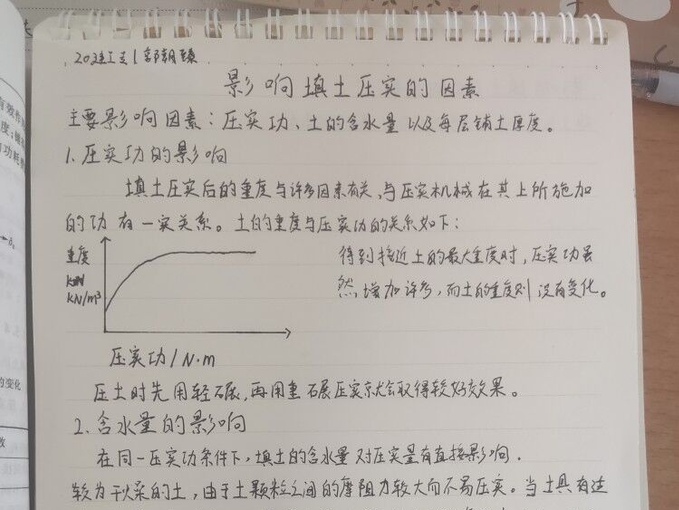 影响填土压实的因素
主要影响因素：压实功、土的含水量以及每层铺土厚度。
1.压实功的影响
填土压实后的重度与许多因素有关,与压实机械在其上所施加
的功有一实关系。土的重度与压实功的关系如下：
重度
kN/m³
得到接近土的最大重度时,压实功虽
然增加许多,而土的重度则没有变化。
压实功/N·m
压土时先用轻碾,再用重碾压实就会取得较好效果。
2.含水量的影响
在同一压实功条件下,填土的含水量对压实量有直接影响.
较为干燥的土,由于土颗粒之间的摩阻力较大而不易压实。当土具有适
的变化
数